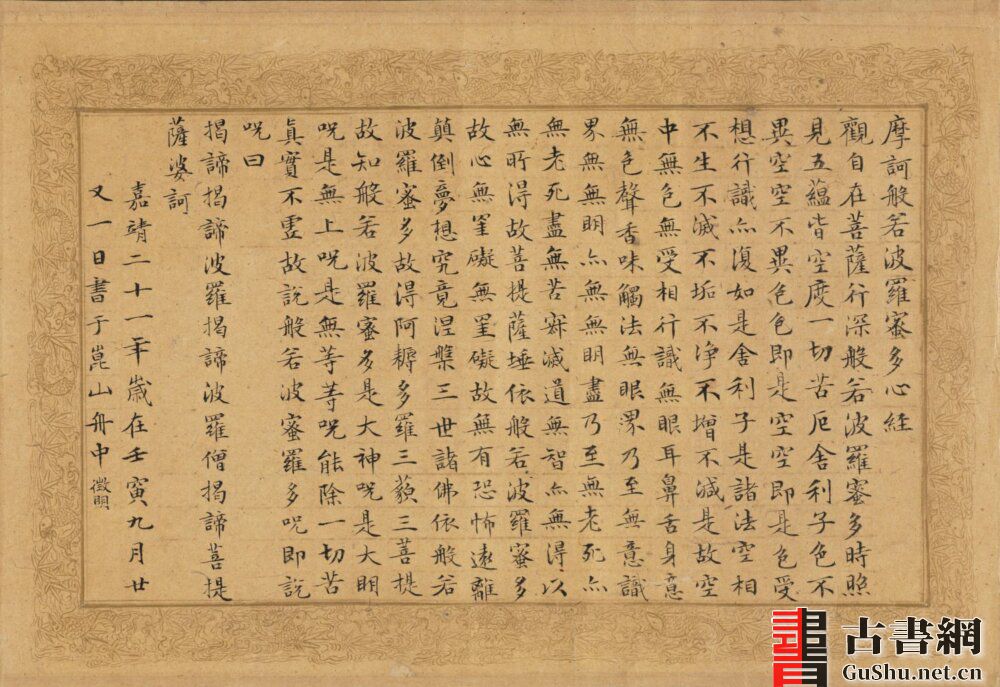 摩訶般若波羅蜜多心経
觀自在菩薩行深般若波羅蜜多時照
見五蘊皆空度一切苦厄舍利子色不
異空空不異色色即是空空即是色受
想行識亦復如是舍利子是諸法空相
不生不滅不垢不淨不增不減是故空
中無色無受相行識無眼耳鼻舌身意
無色聲香味觸法無眼界乃至無意識
界無無明亦無無明盡乃至無老死亦
無老死盡無苦寂滅道無智亦無得以
無所得故菩提薩埵依般若波羅蜜多
故心無罣礙無罣礙故無有恐怖遠離
顛倒夢想究竟涅槃三世諸佛依般若
波羅蜜多故得阿耨多羅三藐三菩提
故知般若波羅蜜多是大神呪是大明
呪是無上呪是無等等呪能除一切苦
真實不虛故說般若波蜜羅多呪即說
呪曰
揭諦揭諦波羅揭諦波羅僧揭諦菩提
薩婆訶
嘉靖二十一年歲在壬寅九月廿
又一日書于崑山舟中 徵明
古書網
GuShu.net.cn